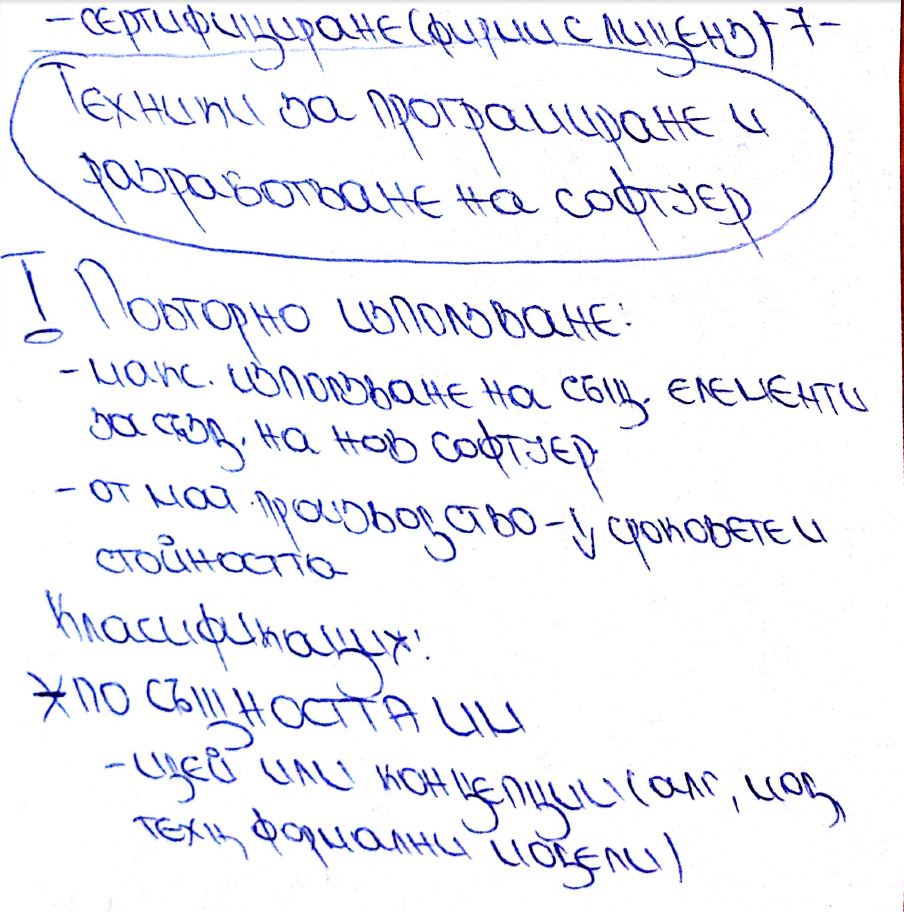 - сертифициране (фирми с лиценз) -7-
Техники за програмиране и
разработване на софтуер
I Повторно използване:
- макс. използване на същ. елементи
за създ. на нов софтуер.
- от мат. производство - ↓ сроковете и
стойността
Класификация:
* по същността им
- идей или концепции (алг, мод,
техн формални модели)